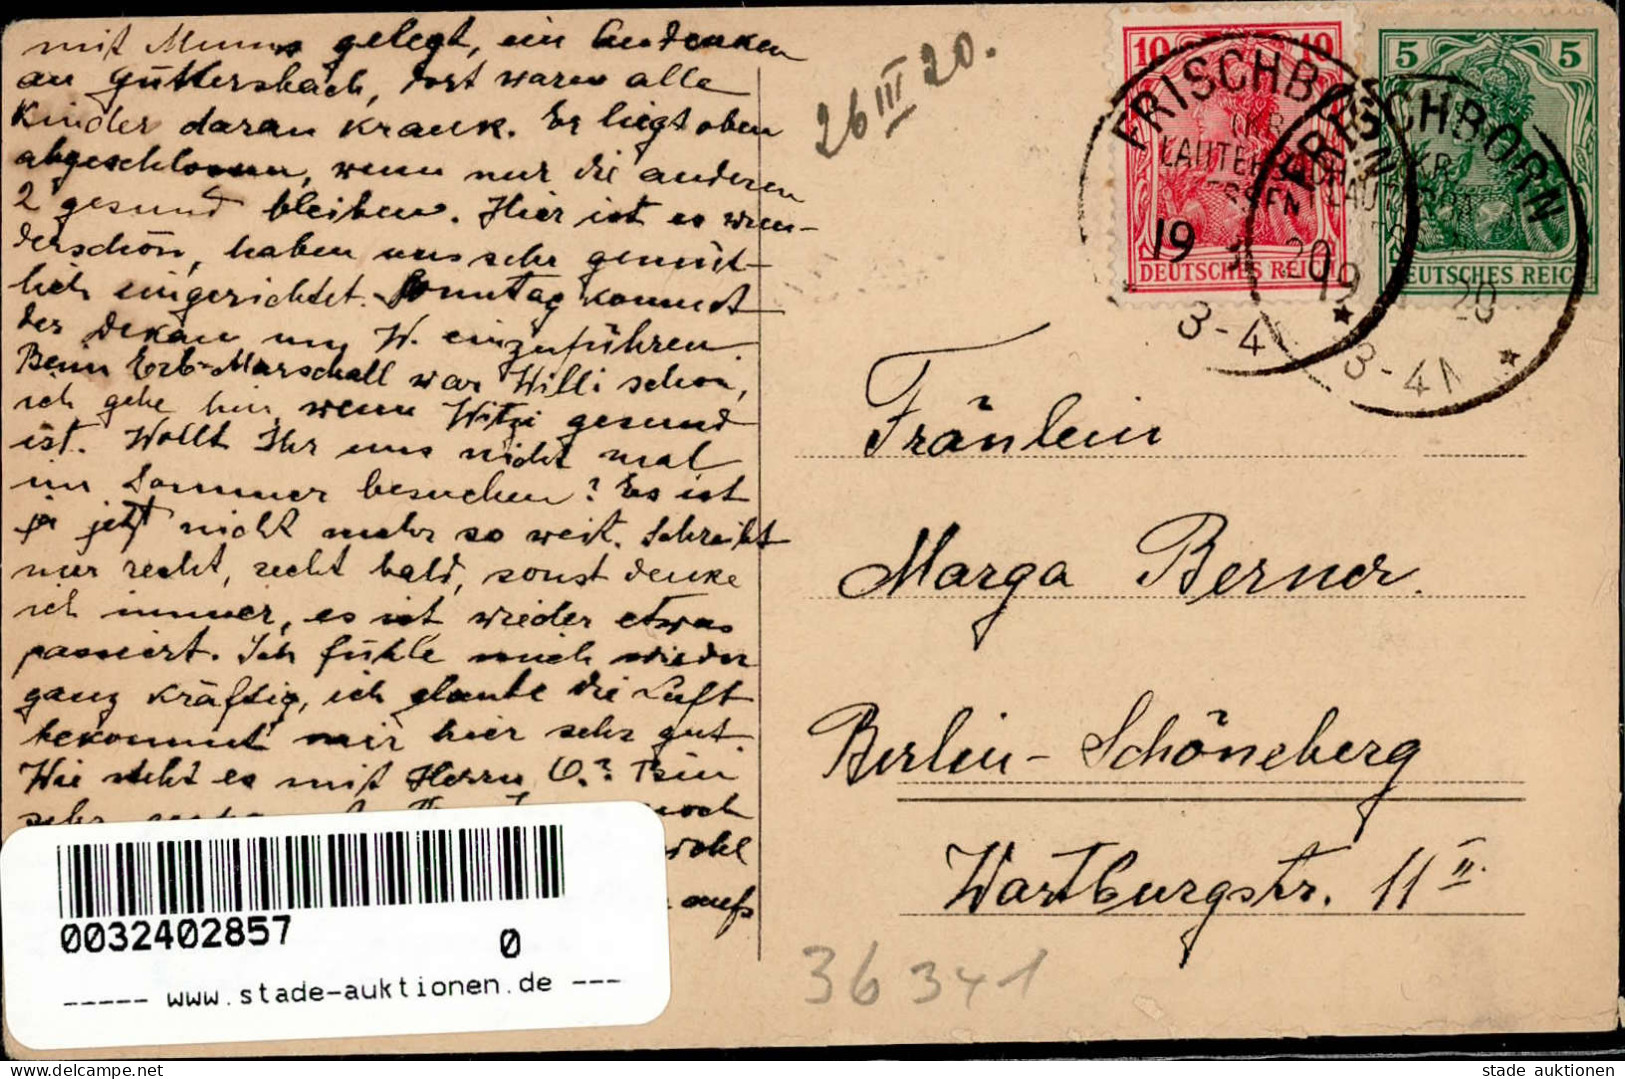 mit Mumps gelegt, ein Andenken
an Güttersbach, dort waren alle
Kinder daran krank. Er liegt oben
abgeschlossen, wenn nur die anderen
2 gesund bleiben. Hier ist es wun-
derschön, haben uns sehr gemüt-
lich eingerichtet. Sonntag kommt
der Dekan um W. einzuführen.
Beim Erb-Marschall war Willi schon,
ich gehe hin, wenn Witzi gesund
ist. Wollt Ihr uns nicht mal
im Sommer besuchen? Es ist
ja jetzt nicht mehr so weit. Schreibt
nur recht, recht bald, sonst denke
ich immer, es ist wieder etwas
passiert. Ich fühle mich wieder
ganz kräftig, ich glaube die Luft
bekommt mir hier sehr gut.
Wie steht es mit Herrn O.? Bin
sehr
noch
wohl
aufs
26 III 20.
10 10
DEUTSCHES REICH
5 5
DEUTSCHES REICH
FRISCHBORN
(KR.
LAUTERBACH
HESSEN)
19 3 20
3-4
FRISCHBORN
KR.
LAUTERBACH
19 20
3-4N
Fräulein
Marga Berner.
Berlin-Schöneberg
Wartburgstr. 11 II.
36 341
0032402857 0
----- www.stade-auktionen.de ---
stade auktionen